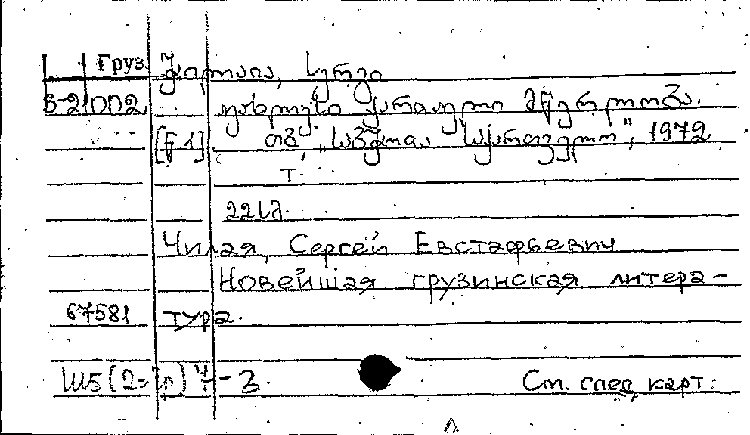 Груз. ჭილაია, სერგი
Б-21002 უახლესი ქართული მწერლობა.
[წ 1] თბ., „საბჭოთა საქართველო", 1972
т.
22 სმ.
Чилая, Сергей Евстафьевич
Новейшая грузинская литера-
67581 тура.
См. след. карт.